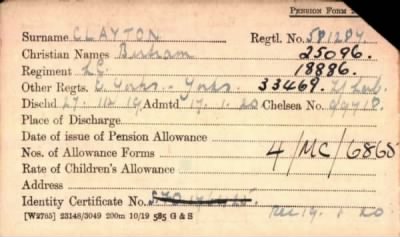 PENSION FORM
Surname CLAYTON Regtl. No. 581287.
Christian Names Bertram 25096.
Regiment L.C. 18886.
Other Regts. E. Yorks. - Yorks. 33469.
Dischd 27. 11. 19 Admtd 17. 1. 20 Chelsea No.
Place of Discharge
Date of issue of Pension Allowance
Nos. of Allowance Forms 4/MC/6865
Rate of Children's Allowance
Address
Identity Certificate No.
[W2785] 23148/3049 200m 10/19 585 G & S Rec 19. 1. 20